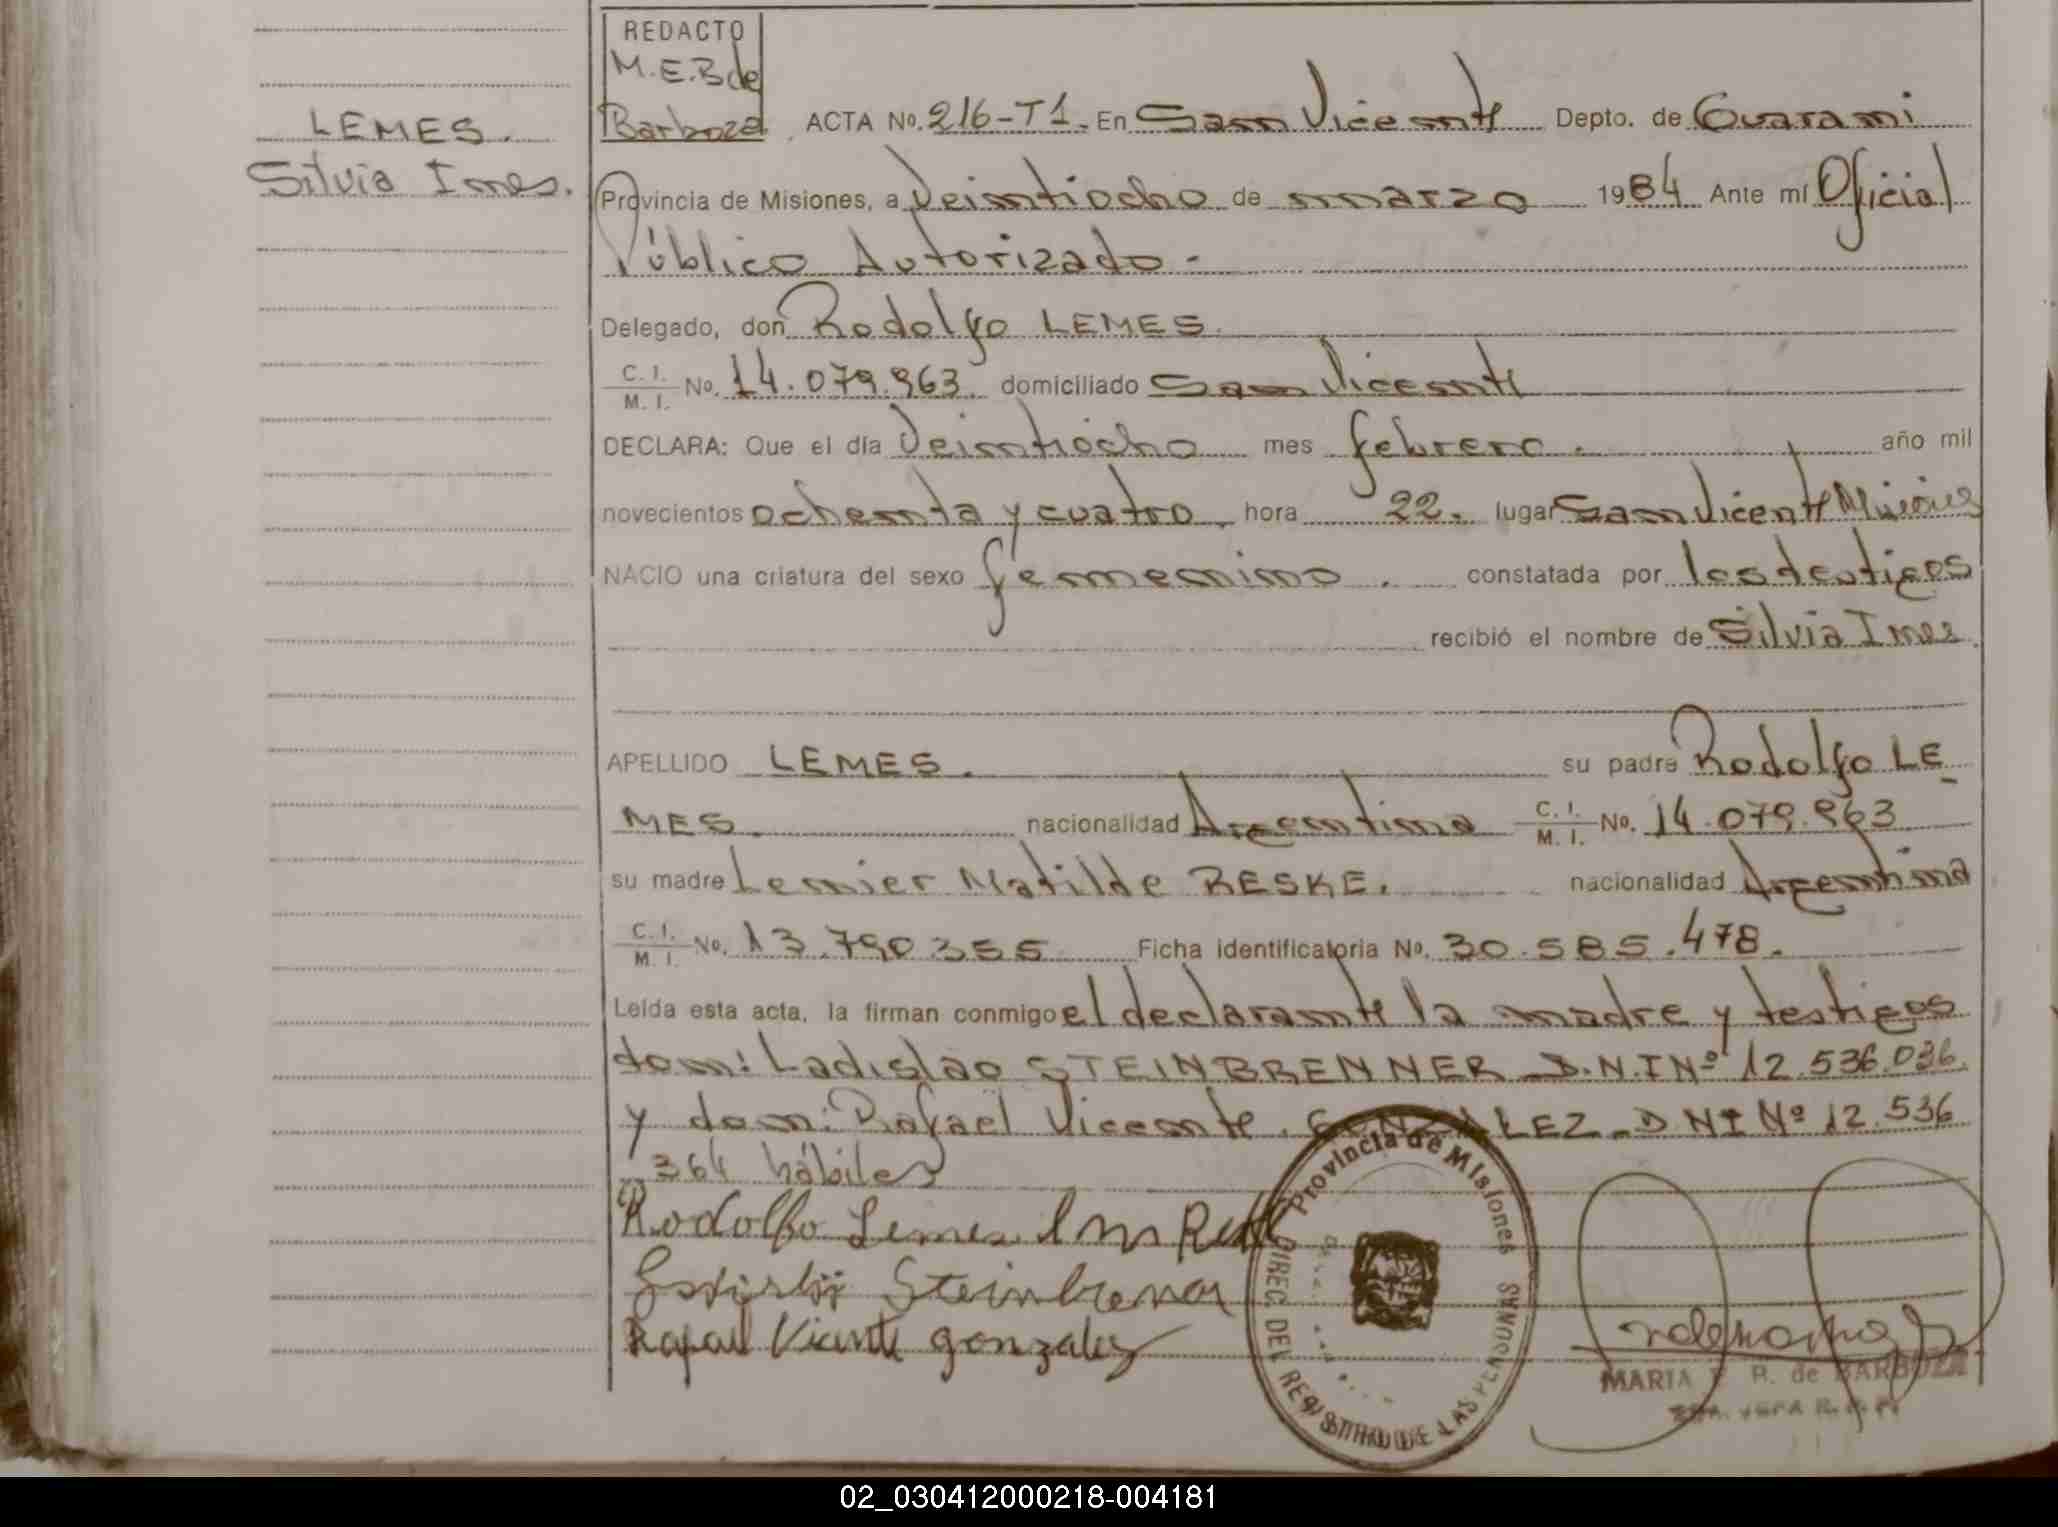 REDACTO
M.E.B de
Barboza
LEMES.
Silvia Ines.
ACTA No. 216-T1. En San Vicente Depto. de Guarani
Provincia de Misiones, a Veintiocho de marzo 1984 Ante mí Oficial
Público Autorizado.
Delegado, don Rodolfo LEMES.
C. I. M. I. No. 14.079.963. domiciliado San Vicente
DECLARA: Que el día Veintiocho mes febrero. año mil
novecientos ochenta y cuatro, hora 22. lugar San Vicente Misiones
NACIO una criatura del sexo femenino. constatada por los testigos
recibió el nombre de Silvia Ines.
APELLIDO LEMES. su padre Rodolfo LE
MES. nacionalidad Argentina C. I. M. I. No. 14.079.963
su madre Lenier Matilde RESKE. nacionalidad Argentina
C. I. M. I. No. 13.790.355 Ficha identificatoria No. 30.585.478.
Leída esta acta, la firman conmigo el declarante la madre y testigos
don: Ladislao STEINBRENNER D.N.I Nº 12.536.036.
y don: Rafael Vicente. GONZALEZ D NI Nº 12.536
364 hábiles
Rodolfo Lemes
Steinbrener
Rafael Vicente gonzalez
Provincia de Misiones
DIREC. DEL REGISTRO DE LAS PERSONAS
MARIA R. de BARBOZA
02_030412000218-004181